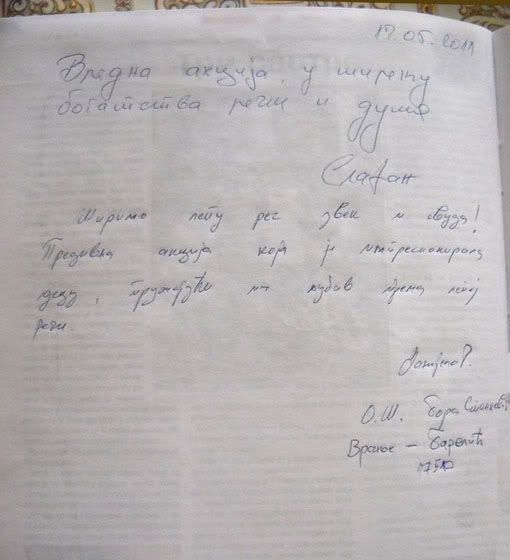 17.05.2011
Вредна акција, у ширењу
богатства речи и душе
Слађан
Ширимо лепу реч увек и свуда!
Предивна акција која је импресионирала
децу, пружајући им љубав према лепој
речи.
О.Ш. Бора Станковић
Врање –
17510